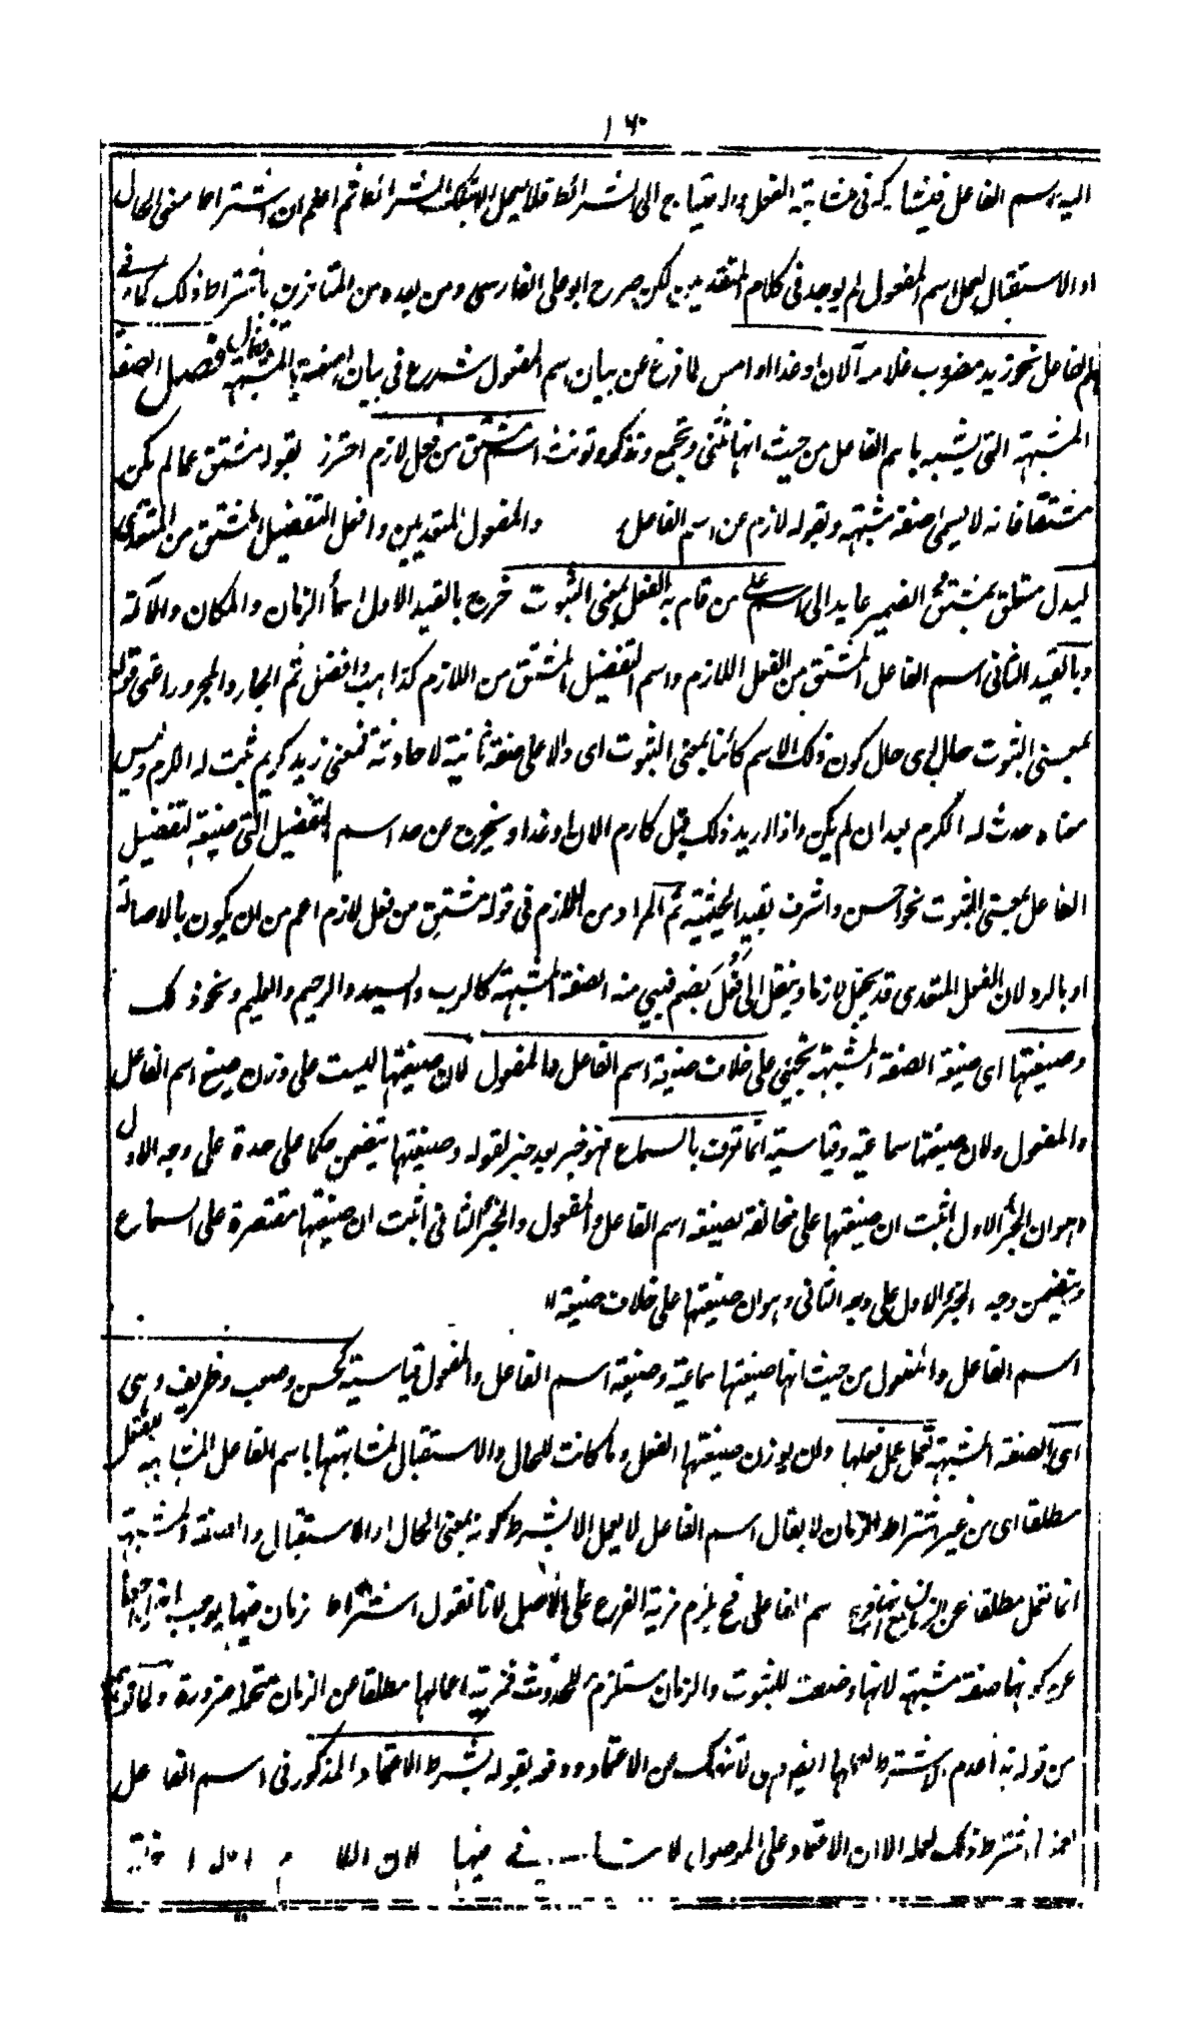 ١٦٠
اليه اسم الفاعل فيشاركه في مشابهة الفعل والاحتياج الى الشرائط فلا يعمل الا بتلك الشرائط ثم اعلم ان اشتراط معنى الحال
او الاستقبال لعمل اسم المفعول لم يوجد في كلام المتقدمين لكن صرح ابو علي الفارسي ومن بعده من المتاخرين باشتراط ذلك كما في
اسم الفاعل نحو زيد مضروب غلامه الآن او غدا او امس لما فرغ عن بيان اسم المفعول شرع في بيان الصفة المشبهة فقال فصل الصفة
المشبهة التي يشبه باسم الفاعل من حيث انها تثنى وتجمع وتذكر وتونث اسم مشتق من فعل لازم احترز بقوله مشتق عما لم يكن
مشتقا فانه لا يسمى صفة مشبهة وبقوله لازم عن اسم الفاعل والمفعول المتعديين وافعل التفضيل المشتق من المتعدي
ليدل متعلق بمشتق الضمير عايد الى اسم على من قام به الفعل بمعنى الثبوت خرج بالقيد الاول اسما الزمان والمكان والآلة
وبالقيد الثاني اسم الفاعل المشتق من الفعل اللازم واسم التفضيل المشتق من اللازم كذاهب وافضل ثم الجار والمجرور اعني قوله
بمعنى الثبوت حال اي حال كون ذلك الاسم كائنا بمعنى الثبوت اي دالا على صفة ثابتة لا حادثة فمعنى زيد كريم ثبت له الكرم وليس
معناه حدث له الكرم بعد ان لم يكن واذا اريد ذلك قيل كارم الان او غدا ويخرج عن حد اسم التفضيل التي صيغة لتفضيل
الفاعل بمعنى الثبوت نحو احسن واشرف بقيد الحيثية ثم المراد من اللازم في قوله مشتق من فعل لازم اعم من ان يكون بالاصالة
او بالرد لان الفعل المتعدي قد يجعل لازما وينقل الى فعل بضم فيبنى منه الصفة المشبهة كالرب والسيد والرحيم والعليم ونحو ذلك
وصيغتها اي صيغة الصفة المشبهة تجيئ على خلاف صيغة اسم الفاعل والمفعول لان صيغتها ليست على وزن صيغ اسم الفاعل
والمفعول ولان صيغتها سماعية وقياسية انما تعرف بالسماع فهو خبر بعد خبر لقوله وصيغتها يتضمن حكما على حدة على وجه الاول
وهو ان الخبر الاول اثبت ان صيغتها على مخالفة لصيغة اسم الفاعل والمفعول والخبر الثاني اثبت ان صيغتها مقتصرة على السماع
ويتضمن وجه الخبر الاول على وجه الثاني وهو ان صيغتها على خلاف صيغة
اسم الفاعل والمفعول من حيث انها صيغتها سماعية وصيغة اسم الفاعل والمفعول قياسية كحسن وصعب وظريف وهي
اي الصفة المشبهة تعمل عمل فعلها وان لم يوزن صيغتها الفعل وما كانت للحال والاستقبال لمشابهتها باسم الفاعل المشابه للفعل
مطلقا اي من غير اشتراط الزمان لا يقال اسم الفاعل لا يعمل الا بشرط كونه بمعنى الحال او الاستقبال والصفة المشبهة
انما تعمل مطلقا عن الزمان مع انها فرع اسم الفاعل فح يلزم مزية الفرع على الاصل لانا نقول اشتراط زمان فيها يوجب اخراجها
عن كونها صفة مشبهة لانها وضعت للثبوت والزمان مستلزم للحدوث فمزية اعمالها مطلقا عن الزمان متحملة ضرورة ولما توهم
من قوله عدم الاشتراط لعملها الاعتماد دفعه بقوله بشرط الاعتماد المذكور في اسم الفاعل
اشترط ذلك لعمله الا ان الاعتماد على الموصول لا فيها لان اللام